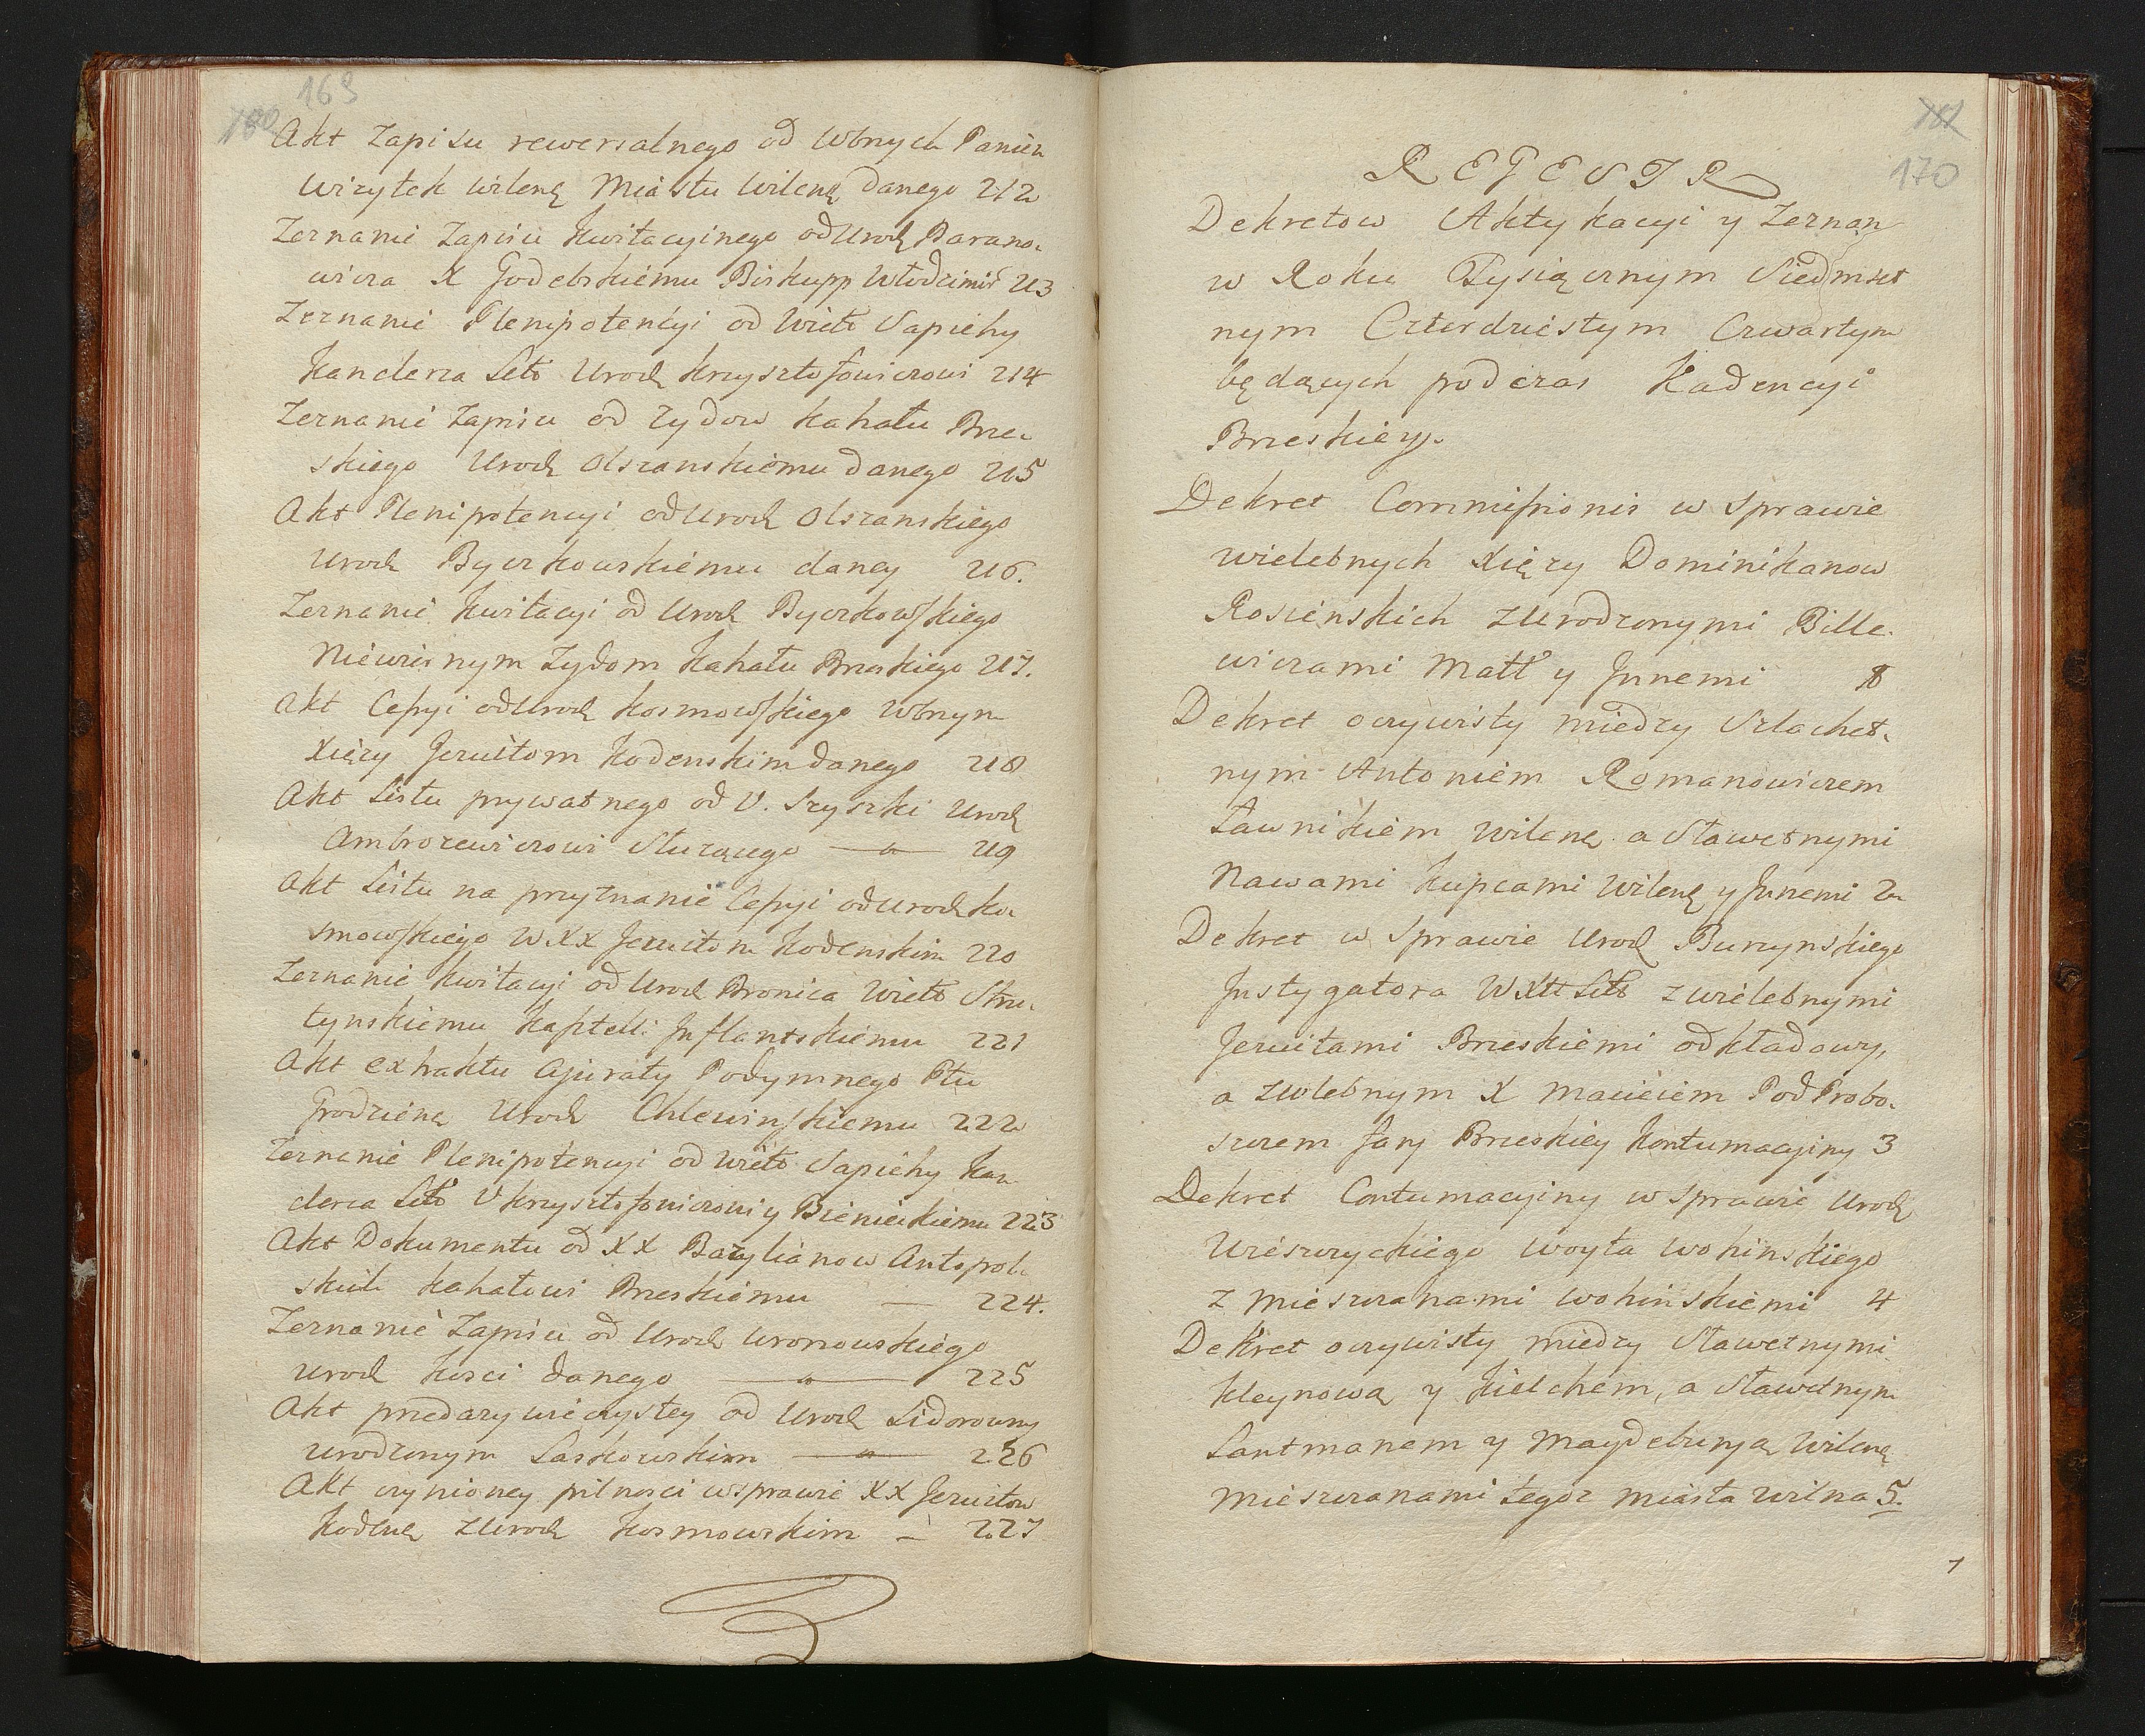 169
180
Akt Zapisu rewersalnego od Wbnych Panien
Wizytek Wileńę Miastu Wileńę danego 212
Zeznanie Zapisu Kwitacyinego od Urodz Barano„
wicza X Godebskiemu Biskupp Włodzimir 213
Zeznanie Plenipotencyi od Wielo Sapiehy
Kanclerza Litt Urodz Krysztofowiczowi 214
Zeznanie Zapisu od Zydow Kahału Brze„
skiego Urodz Olszanskiemu danego 215
Akt Plenipotencyi od Urodz Olszanskiego
Urodz Byczkowskiemu daney 216.
Zeznanie Kwitacyi od Urodz Byczkowskiego
Niewiernym Zydom Kahału Brzeskiego 217.
Akt Cessyi od Urodz Kosmowskiego Wbnym
Xięzy Jezuitom Kodenskim danego 218
Akt Listu prywatnego od U. Szyszki Urodz
Ambrozewiczowi Służącego — 219
Akt Listu na przyznanie Cessyi od Urodz Ko„
smowskiego W XX Jezuitom Kodenskim 220
Zeznanie Kwitacyi od Urodz Bronica Wielo Stru„
tynskiemu Kaptelli Inflantskiemu 221
Akt Extraktu Ajuraty Podymnego Ptu
Grodzieńę Urodz Chlewinskiemu 222
Zeznanie Plenipotencyi od Wielo Sapiehy Kan„
clerza Litt U Krysztofowiczowi y Bienieckiemu 223
Akt Dokumentu od XX Bazylianow Antopol„
skich Kahałowi Brzeskiemu — 224.
Zeznanie Zapisu od Urodz Wronowskiego
Urodz Kosci danego — 225
Akt przedazy wieczystey od Urodz Sidorowny
Urodzonym Laskowskim — 226
Akt czynioney pilnosci w sprawie XX Jezuitow
Kodenę z Urodz Kosmowskim — 227
181
170
REGESTR
Dekretow Aktykacyi y Zeznan
w Roku Tysiącznym Siedmset
nym Czterdziestym Czwartym
będących podczas Kadencyi
Brzeskiey.
Dekret Commissionis w Sprawie
wielebnych Xięzy Dominikanow
Rosienskich z Urodzonymi Bille„
wiczami Matt y Innemi 1
Dekret oczywisty miedzy Szlachet„
nym Antoniem Romanowiczem
Ławnikiem Wileńę a Sławetnymi
Nawami Kupcami Wileńę y Innemi 2
Dekret w Sprawie Urodz Burzynskiego
Justygatora W X Litt z wielebnymi
Jezuitami Brzeskiemi odkładowy,
a z wlebnym X Macieiem Pod Probo„
szczem Fary Brzeskiey Kontumacyiny 3
Dekret Contumacyiny w sprawie Urodz
Uzieszyckiego Woyta Wohinskiego
z Mieszczanami Wohinskiemi 4
Dekret oczywisty miedzy Sławetnymi
Kleynową y Kielchem, a Sławetnym
Lantmanem y Maydeburyą Wileńę
Mieszczanami tegoz Miasta Wilna 5.